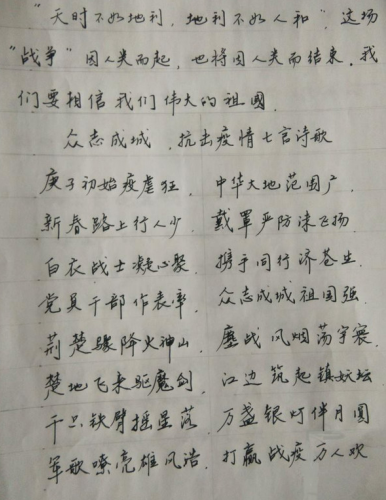 “天时不如地利，地利不如人和”，这场
“战争”因人类而起，也将因人类而结束，我
们要相信我们伟大的祖国.
众志成城，抗击疫情七言诗歌
庚子初始疫虐狂，中华大地范围广，
新春路上行人少，戴罩严防沫飞扬.
白衣战士凝心聚，携手同行济苍生.
党员干部作表率，众志成城祖国强.
荆楚骤降火神山，鏖战风烟荡宇寰.
楚地飞来驱魔剑，江边筑起镇妖坛
千只铁臂摇星落，万盏银灯伴月圆
军歌嘹亮雄风浩，打赢战疫万人欢